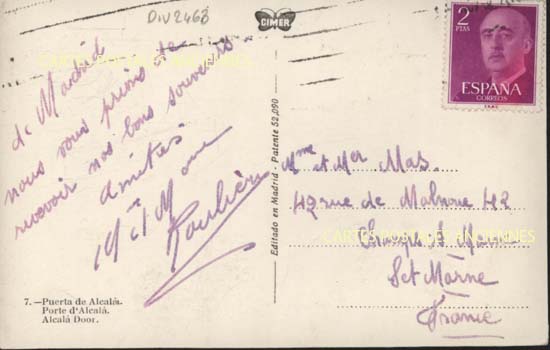 DIV2468
CIMER
2
PTAS
ESPAÑA
CORREOS
CARTES POSTALES ANCIENNES
de Madrid
nous vous prions de
recevoir nos bons souvenirs
Amitiés
Mr et Mme
Editado en Madrid - Patente 52,090
Mme et Mr Mas.
42 rue de Malnoue 42
Champs s/ Marne
CARTES POSTALES ANCIENNES
Set Marne
France
7. — Puerta de Alcalá.
Porte d'Alcalá.
Alcalá Door.